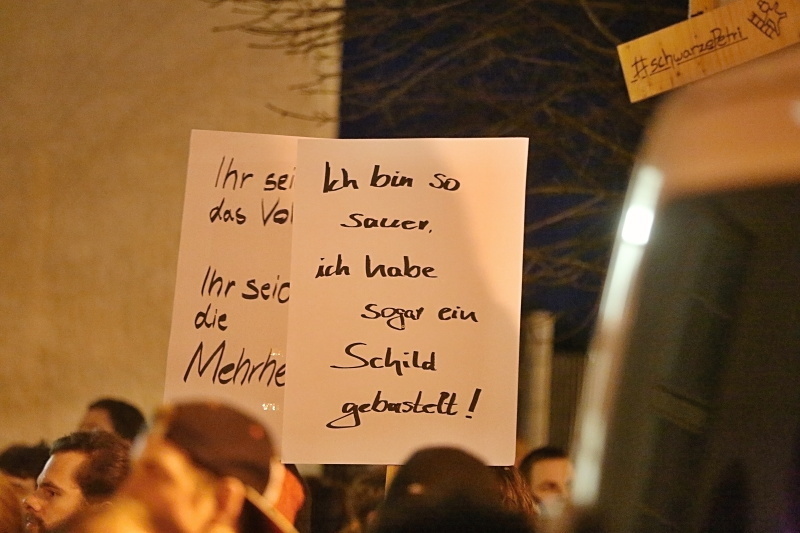 #schwarzePetri
Ihr sei
das Vol
Ihr seid
die
Mehrhe
Ich bin so
sauer,
ich habe
sogar ein
Schild
gebastelt!